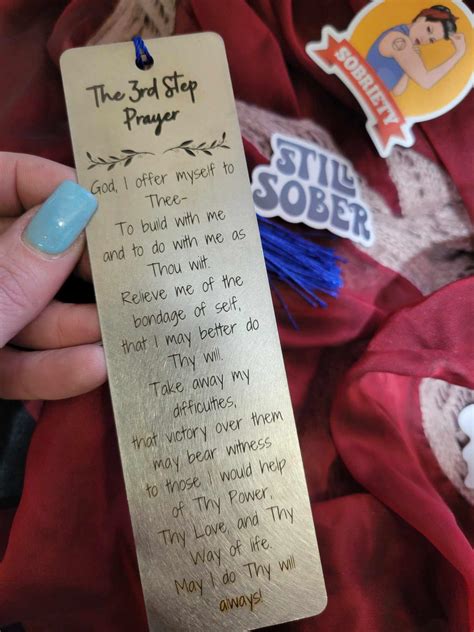 The 3rd Step
Prayer
God, I offer myself to
Thee-
To build with me
and to do with me as
Thou wilt.
Relieve me of the
bondage of self,
that I may better do
Thy will.
Take away my
difficulties,
that victory over them
may bear witness
to those I would help
of Thy Power,
Thy Love, and Thy
Way of life.
May I do Thy will
always!
SOBRIETY
STILL
SOBER